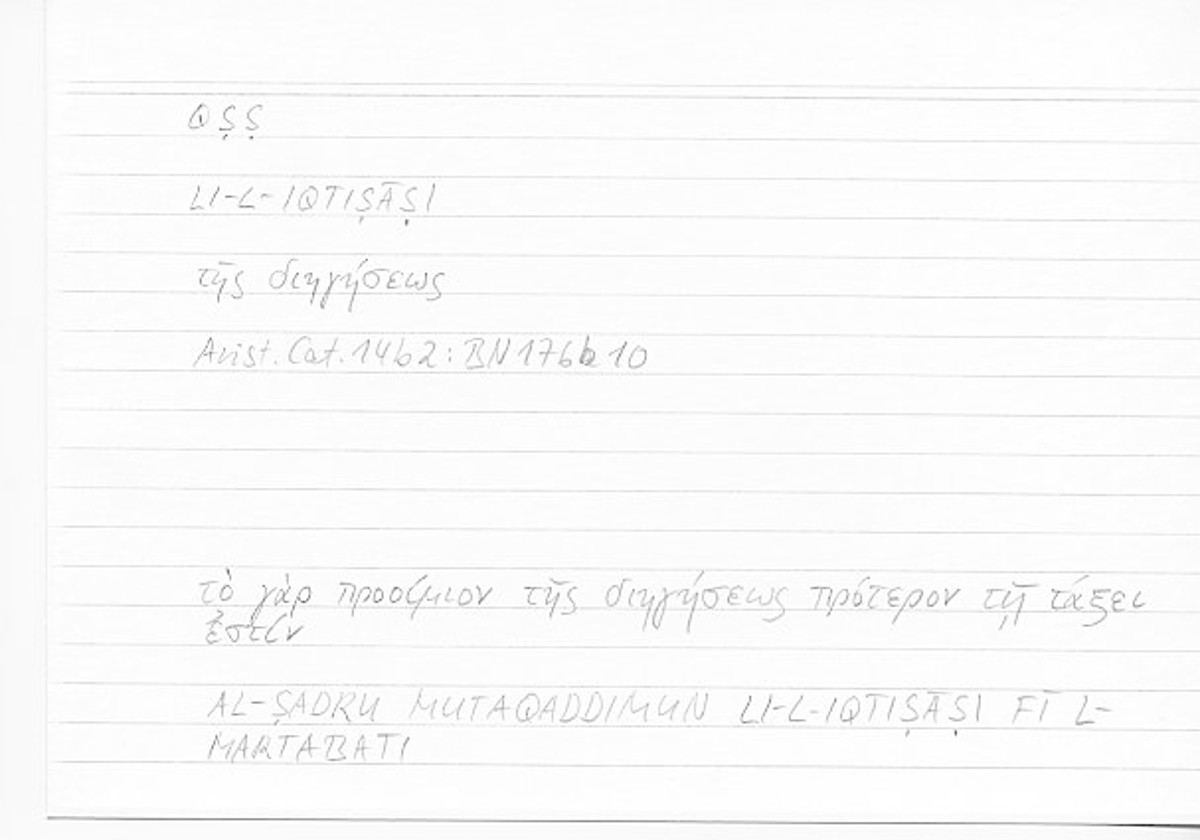 QṢṢ
LI-L-IQTIṢĀṢI
τῆς διηγήσεως
Arist. Cat. 14b2: BN176b10
τὸ γὰρ προοίμιον τῆς διηγήσεως πρότερον τῇ τάξει
ἐστίν
AL-ṢADRU MUTAQADDIMUN LI-L-IQTIṢĀṢI FĪ L-
MARTABATI